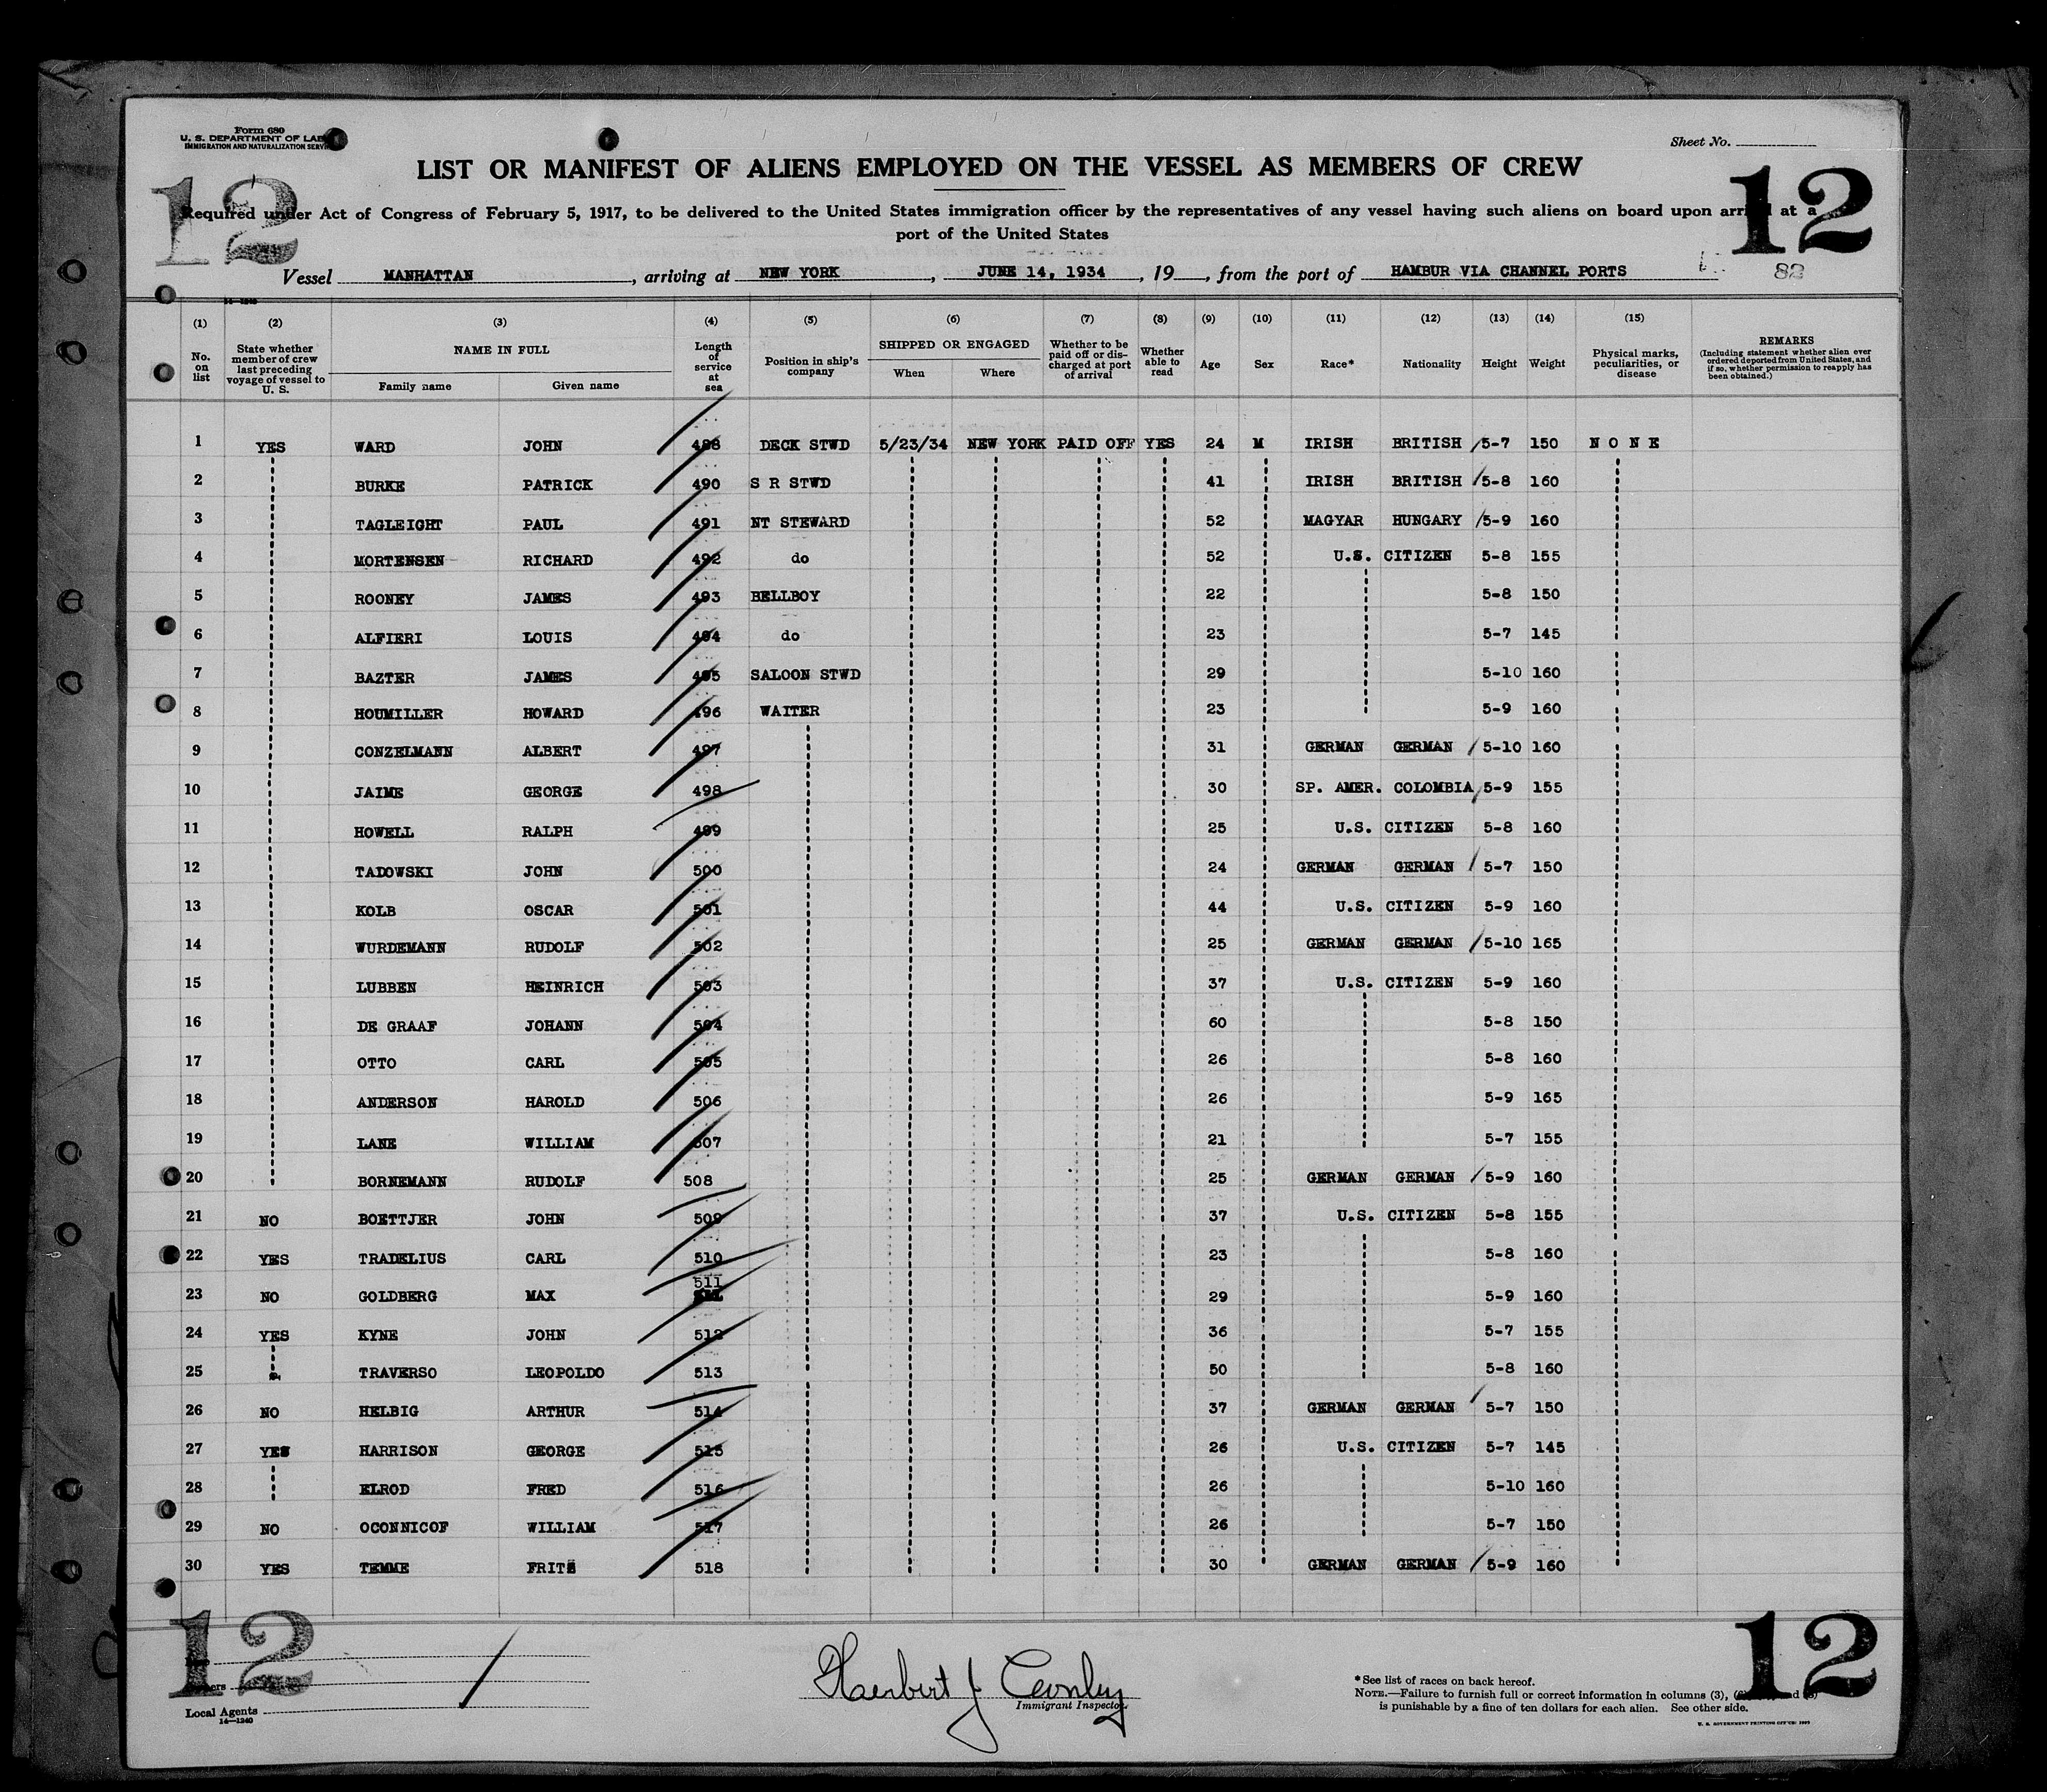 Form 680
U. S. DEPARTMENT OF LAB
IMMIGRATION AND NATURALIZATION SERV
Sheet No.
12
12
LIST OR MANIFEST OF ALIENS EMPLOYED ON THE VESSEL AS MEMBERS OF CREW
Required under Act of Congress of February 5, 1917, to be delivered to the United States immigration officer by the representatives of any vessel having such aliens on board upon arrival at a
port of the United States
Vessel MANHATTAN, arriving at NEW YORK, JUNE 14, 1934, 19, from the port of HAMBUR VIA CHANNEL PORTS 82
(1) (2) (3) (4) (5) (6) (7) (8) (9) (10) (11) (12) (13) (14) (15)
No. on list State whether member of crew last preceding voyage of vessel to U. S. NAME IN FULL Family name Given name Length of service at sea Position in ship's company SHIPPED OR ENGAGED When Where Whether to be paid off or discharged at port of arrival Whether able to read Age Sex Race* Nationality Height Weight Physical marks, peculiarities, or disease REMARKS (Including statement whether alien ever ordered deported from United States, and if so, whether permission to reapply has been obtained.)
1 YES WARD JOHN 488 DECK STWD 5/23/34 NEW YORK PAID OFF YES 24 M IRISH BRITISH 5-7 150 N O N E
2 BURKE PATRICK 490 S R STWD 41 IRISH BRITISH 5-8 160
3 TAGLEIGHT PAUL 491 NT STEWARD 52 MAGYAR HUNGARY 5-9 160
4 MORTENSEN RICHARD 492 do 52 U.S. CITIZEN 5-8 155
5 ROONEY JAMES 493 BELLBOY 22 5-8 150
6 ALFIERI LOUIS 494 do 23 5-7 145
7 BAZTER JAMES 495 SALOON STWD 29 5-10 160
8 HOUMILLER HOWARD 496 WAITER 23 5-9 160
9 CONZELMANN ALBERT 497 31 GERMAN GERMAN 5-10 160
10 JAIME GEORGE 498 30 SP. AMER. COLOMBIA 5-9 155
11 HOWELL RALPH 499 25 U.S. CITIZEN 5-8 160
12 TADOWSKI JOHN 500 24 GERMAN GERMAN 5-7 150
13 KOLB OSCAR 501 44 U.S. CITIZEN 5-9 160
14 WURDEMANN RUDOLF 502 25 GERMAN GERMAN 5-10 165
15 LUBBEN HEINRICH 503 37 U.S. CITIZEN 5-9 160
16 DE GRAAF JOHANN 504 60 5-8 150
17 OTTO CARL 505 26 5-8 160
18 ANDERSON HAROLD 506 26 5-9 165
19 LANE WILLIAM 507 21 5-7 155
20 BORNEMANN RUDOLF 508 25 GERMAN GERMAN 5-9 160
21 NO BOETTJER JOHN 509 37 U.S. CITIZEN 5-8 155
22 YES TRADELIUS CARL 510 23 5-8 160
23 NO GOLDBERG MAX 511 29 5-9 160
24 YES KYNE JOHN 512 36 5-7 155
25 TRAVERSO LEOPOLDO 513 50 5-8 160
26 NO HELBIG ARTHUR 514 37 GERMAN GERMAN 5-7 150
27 YES HARRISON GEORGE 515 26 U.S. CITIZEN 5-7 145
28 ELROD FRED 516 26 5-10 160
29 NO OCONNICOF WILLIAM 517 26 5-7 150
30 YES TEMME FRITZ 518 30 GERMAN GERMAN 5-9 160
12
12
Local Agents
14—1240
Herbert J
Immigrant Inspector
*See list of races on back hereof.
NOTE.—Failure to furnish full or correct information in columns (3), (6), and
is punishable by a fine of ten dollars for each alien. See other side.
U. S. GOVERNMENT PRINTING OFFICE: